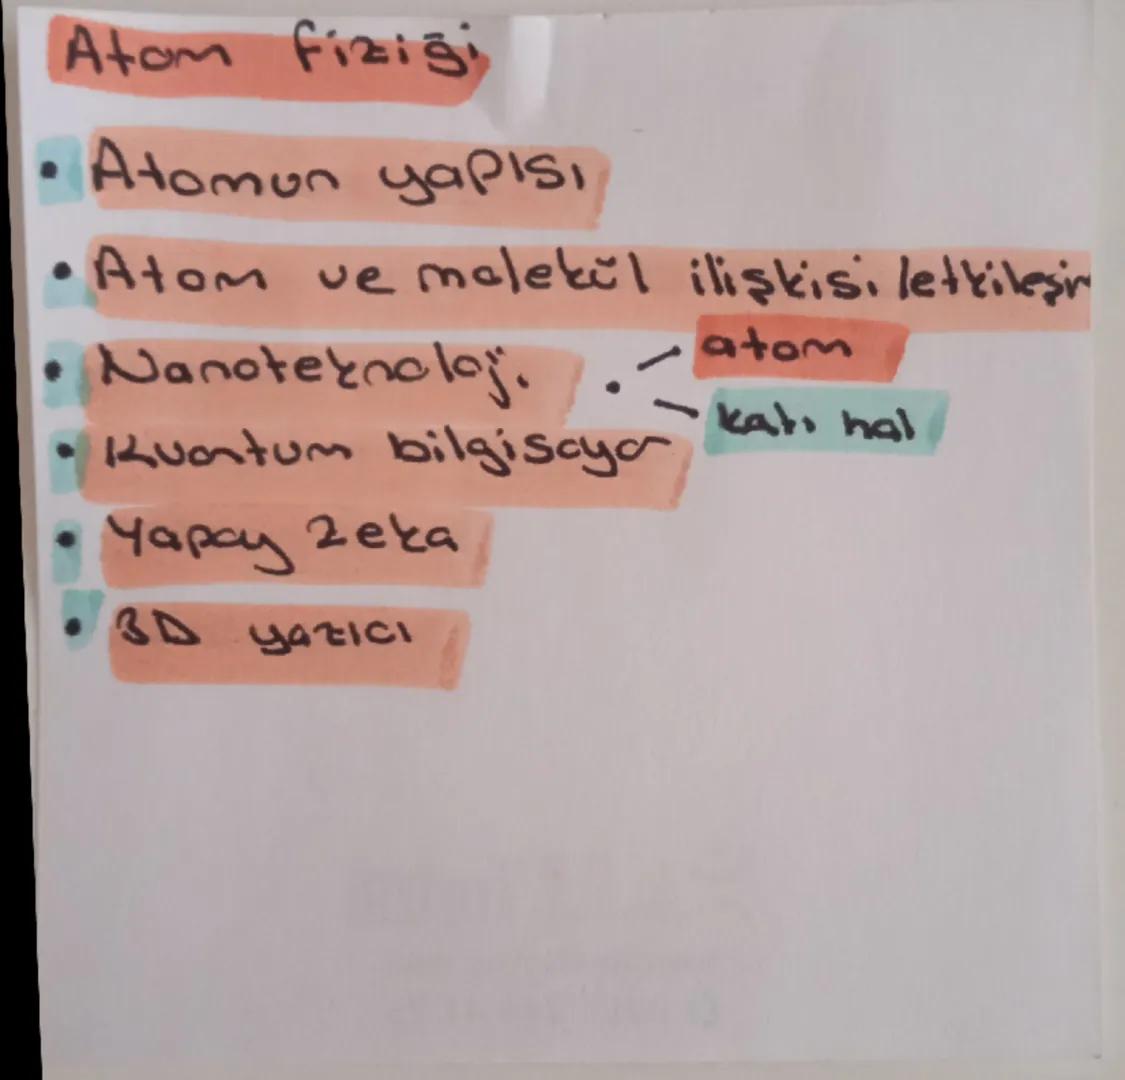 Atom fiziği
• Atomun yapısı
• Atom ve molekül ilişkisi / etkileşim
• Nanoteknoloji
atom
katı hal
• Kuantum bilgisayar
• Yapay zeka
• 3D yazıcı